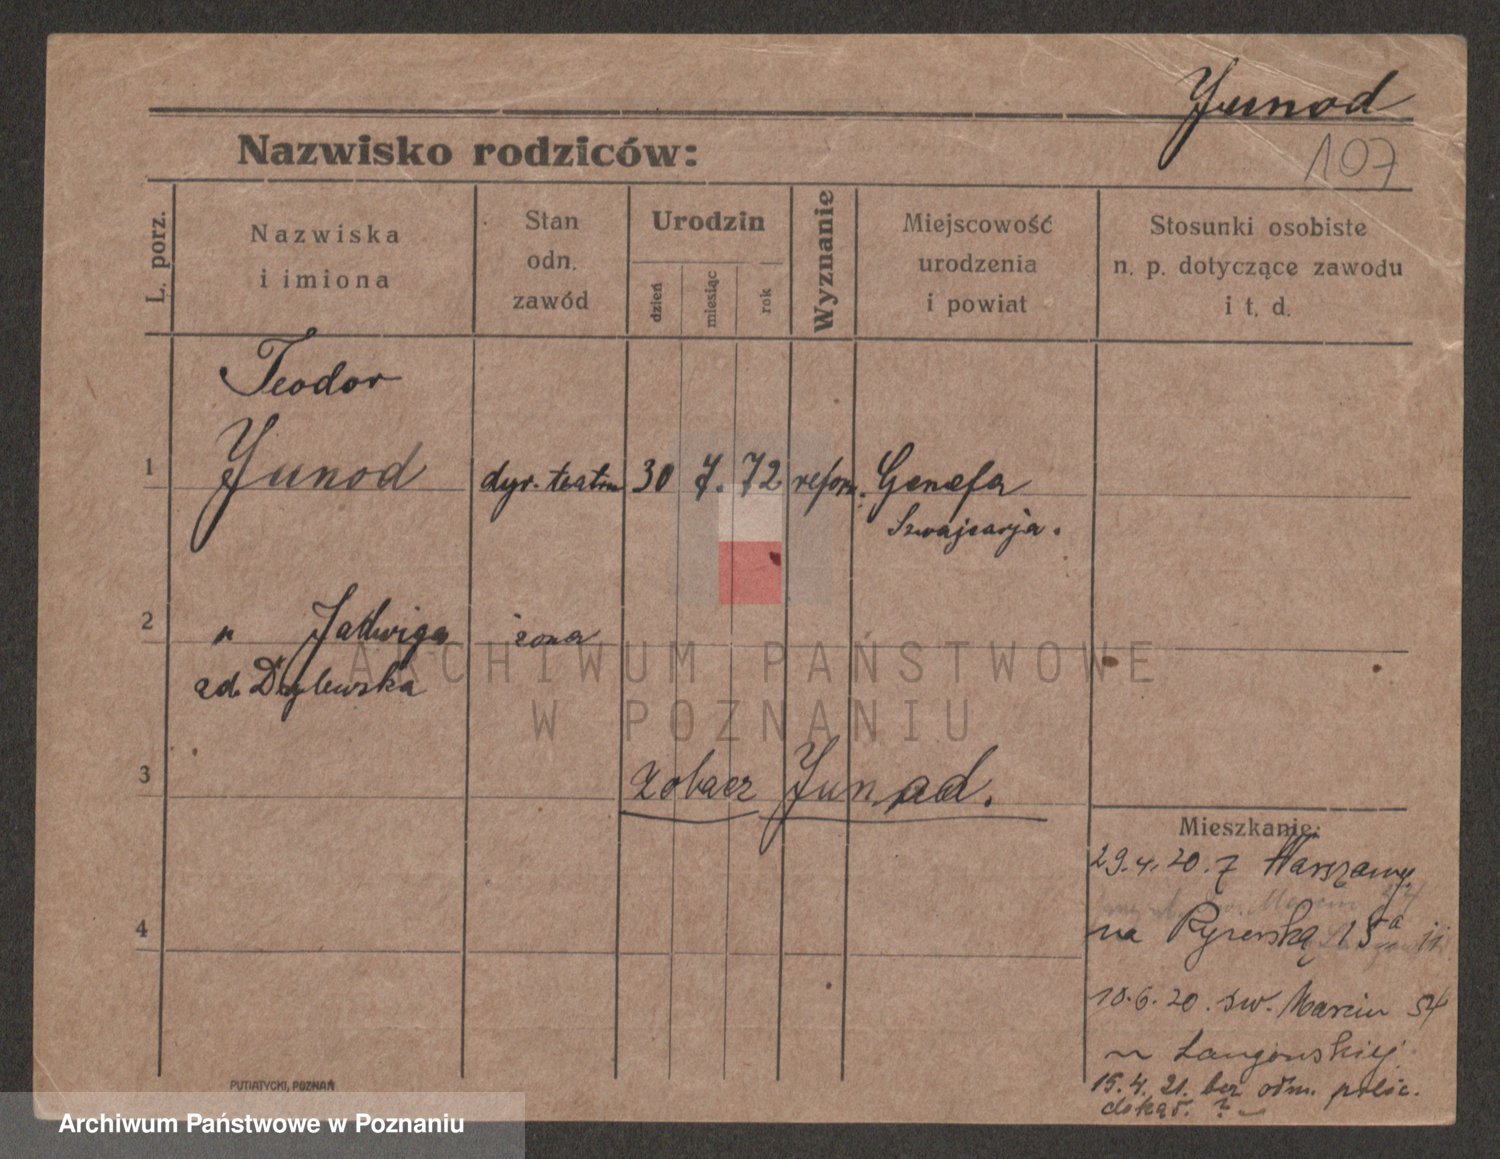 Junod
107
Nazwisko rodziców:
L. porz.
Nazwiska
i imiona
Stan
odn.
zawód
Urodzin
dzień
miesiąc
rok
Wyznanie
Miejscowość
urodzenia
i powiat
Stosunki osobiste
n. p. dotyczące zawodu
i t. d.
Teodor
1 Junod dyr. teatru 30 7. 72 reform. Genefa
Szwajcarja.
2 " Jadwiga żona
zd.
ARCHIWUM PAŃSTWOWE
W POZNANIU
3 zobacz Junad.
Mieszkanie:
29.4.20. z Warszawy
4 na 15a
10.6.20. św. Marcin 54
15.4.21. bez odm. polic.
dokąd. ?
PUTIATYCKI, POZNAŃ
Archiwum Państwowe w Poznaniu